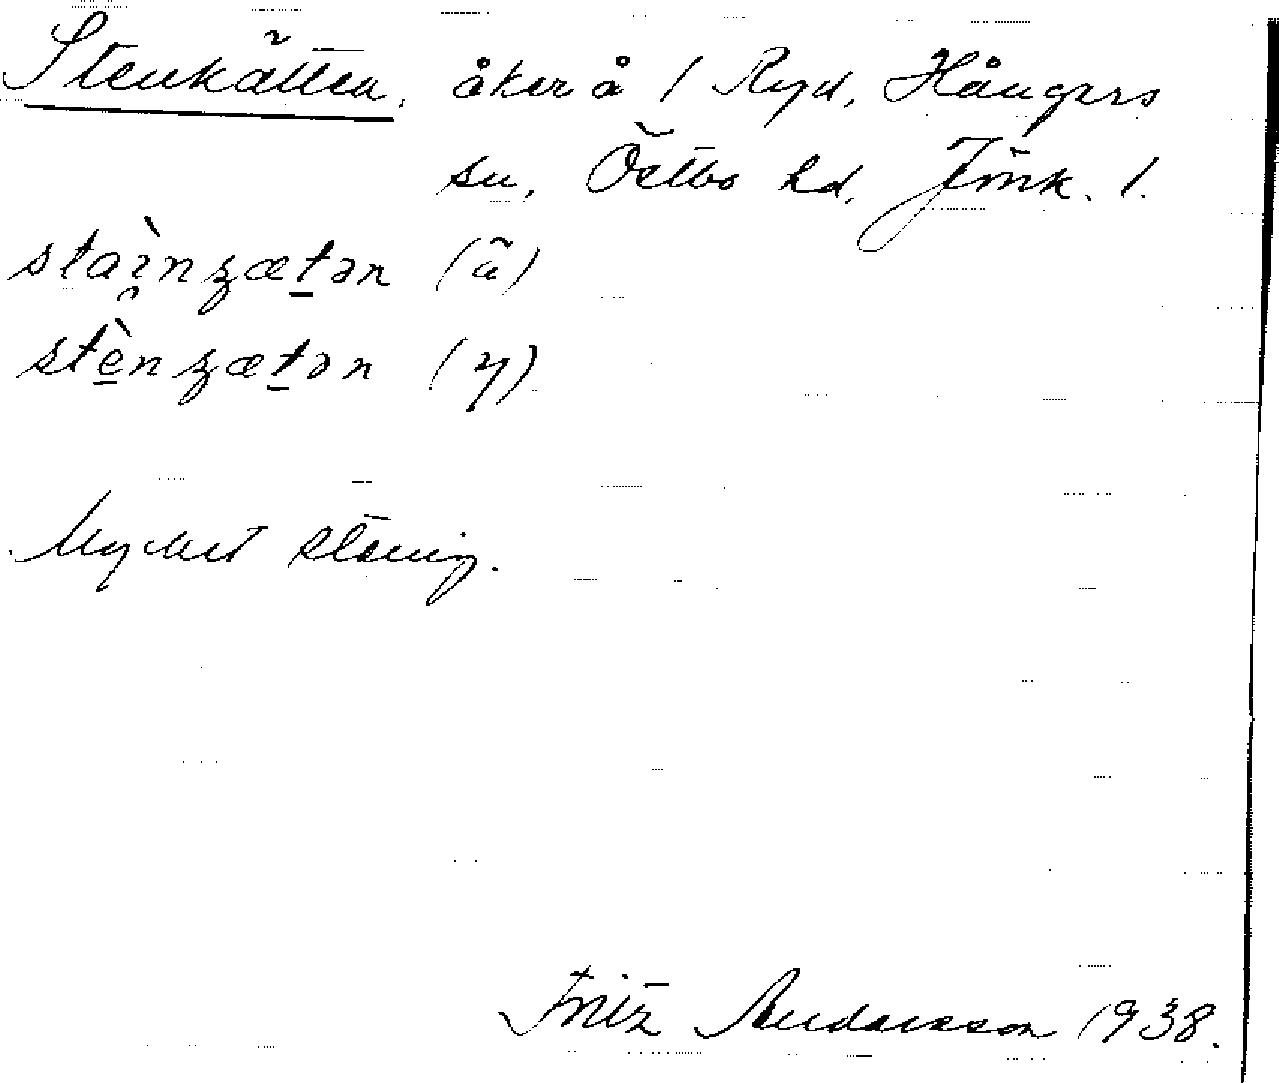 Stenkätten, åker å 1 Ryd, Hångers
sn, Östbo hd, Jönk. l.
stàinʒætən (ä)
stènʒætən (y)
Mycket stenig.
Fritz Andersson 1938.